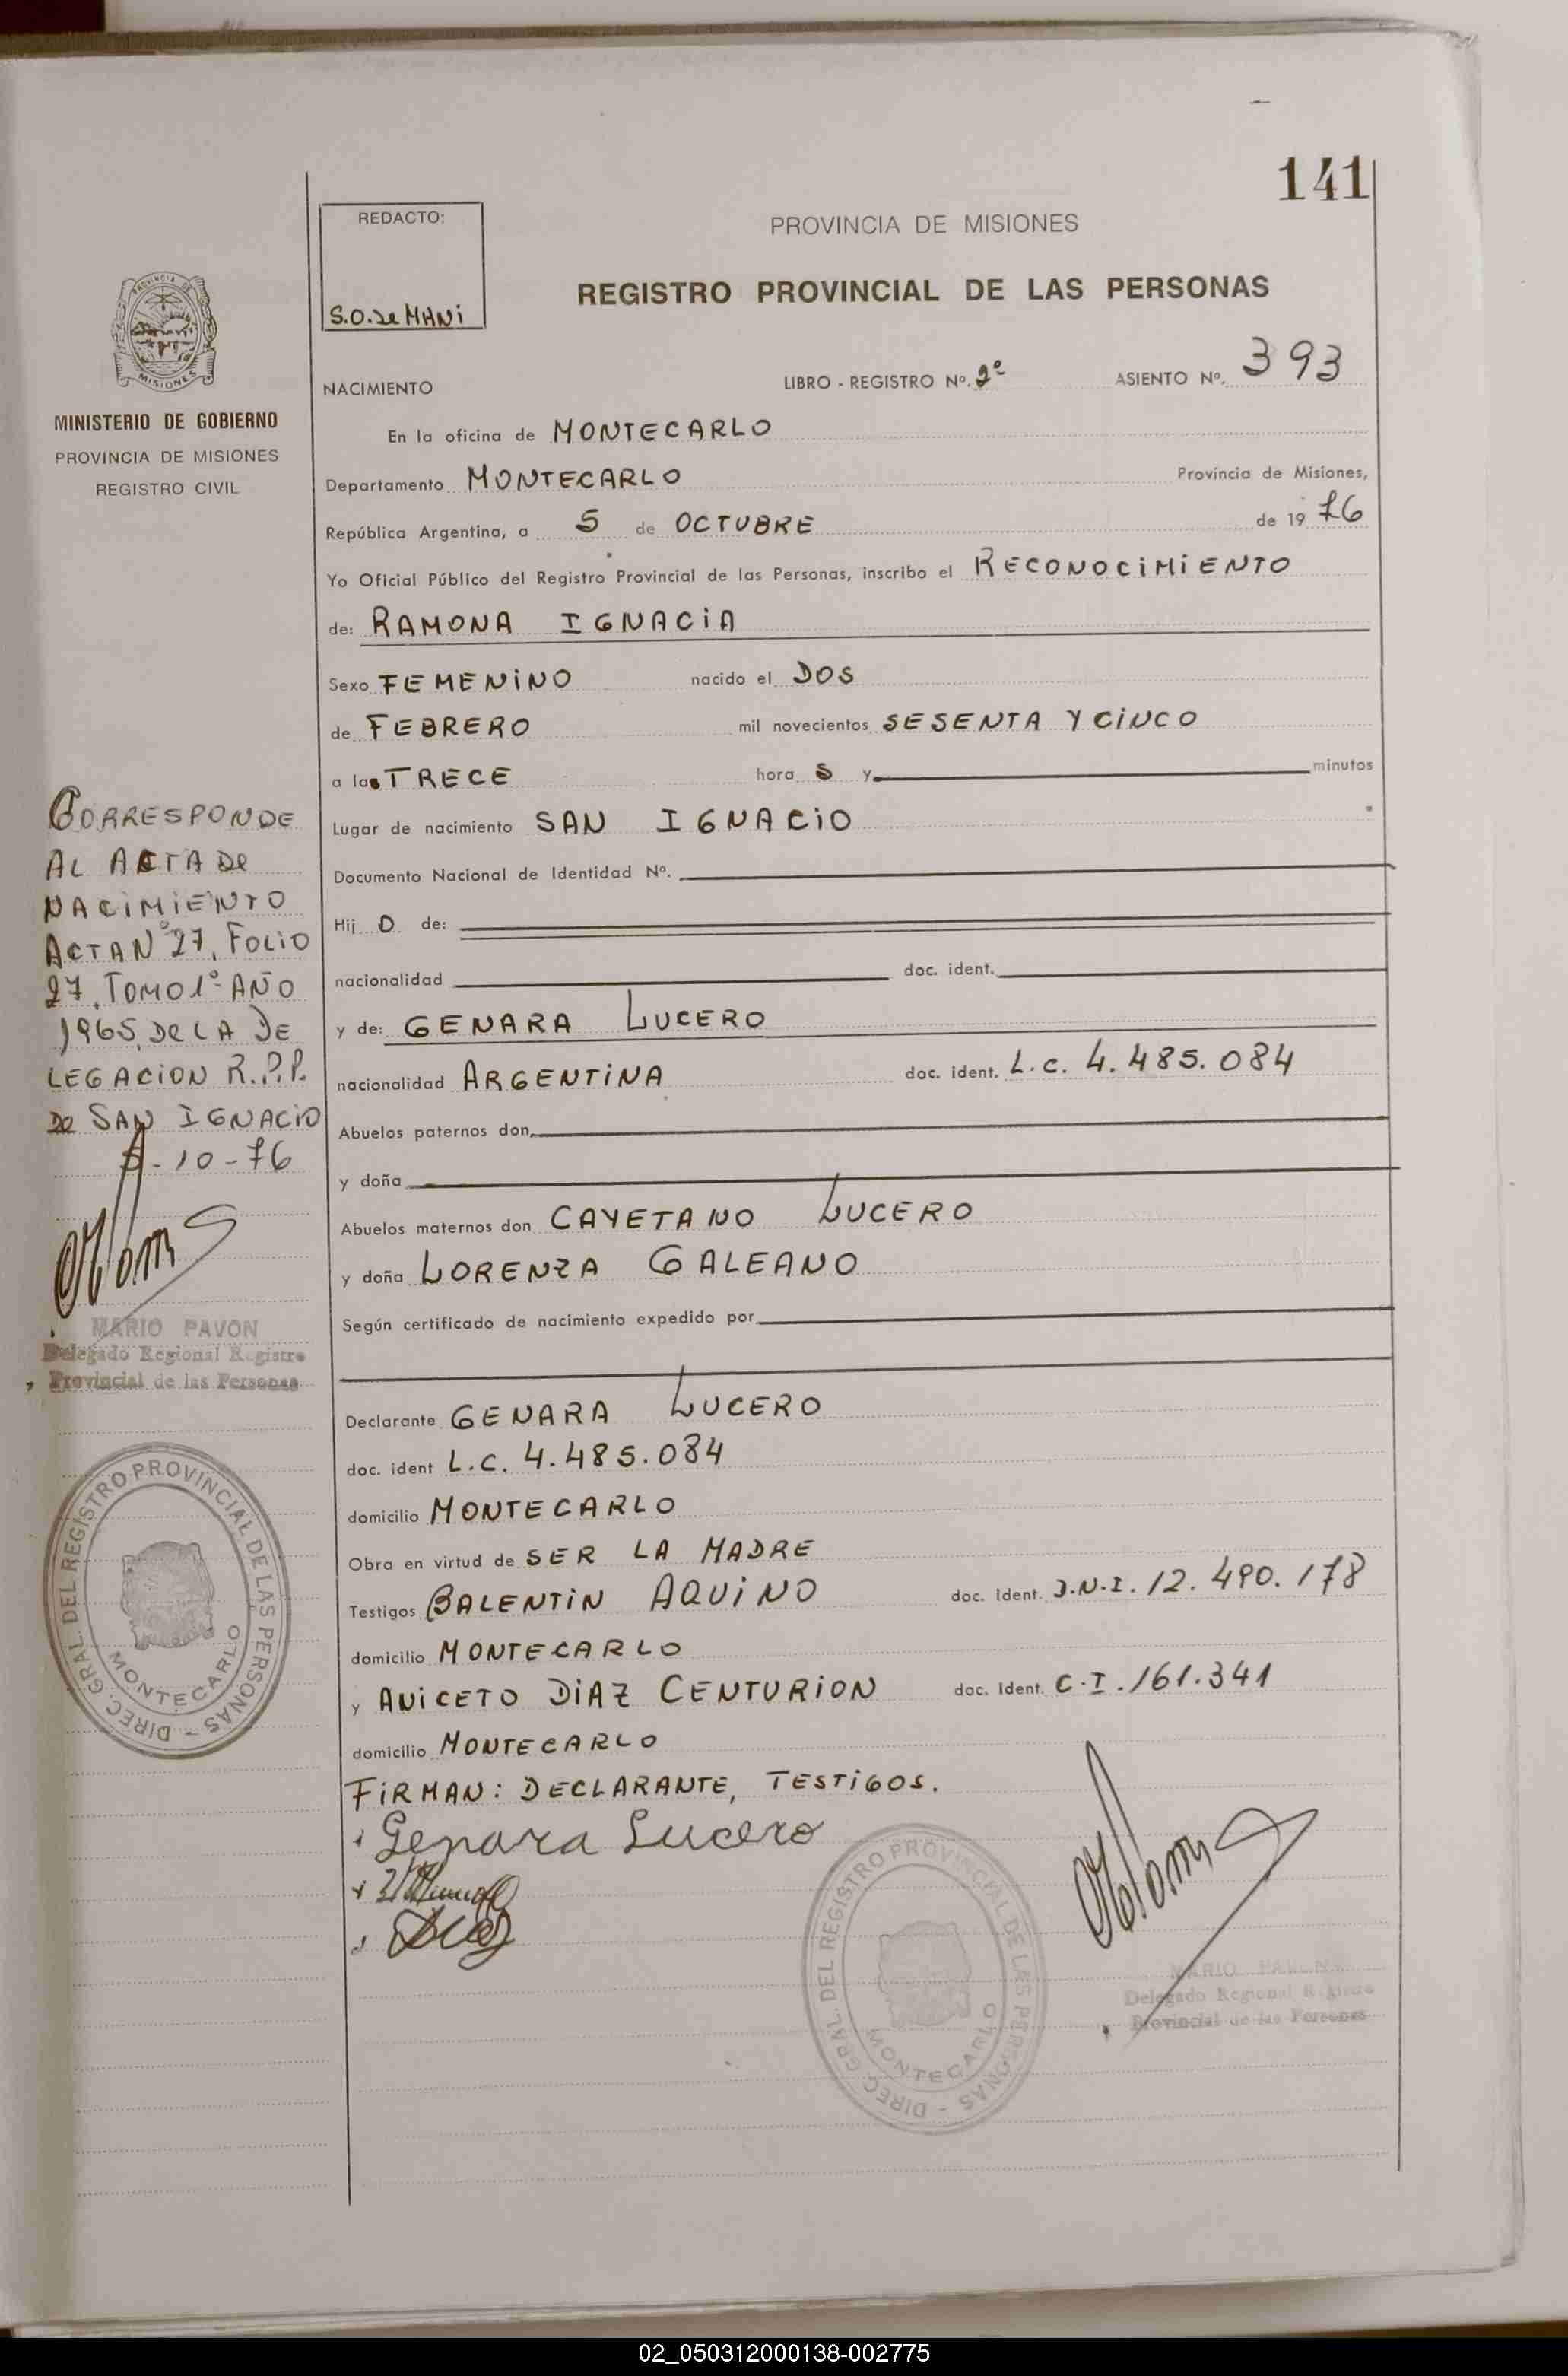 141
REDACTO:
S.O. de MANI
PROVINCIA DE MISIONES
REGISTRO PROVINCIAL DE LAS PERSONAS
NACIMIENTO LIBRO - REGISTRO Nº. 2º ASIENTO Nº. 393
En la oficina de MONTECARLO
Departamento MONTECARLO Provincia de Misiones,
República Argentina, a 5 de OCTUBRE de 19 76
Yo Oficial Público del Registro Provincial de las Personas, inscribo el RECONOCIMIENTO
de: RAMONA IGNACIA
Sexo FEMENINO nacido el DOS
de FEBRERO mil novecientos SESENTA Y CINCO
a las TRECE hora S y minutos
Lugar de nacimiento SAN IGNACIO
Documento Nacional de Identidad Nº.
Hij O de:
nacionalidad doc. ident.
y de: GENARA LUCERO
nacionalidad ARGENTINA doc. ident. L.C. 4.485.084
Abuelos paternos don
y doña
Abuelos maternos don CAYETANO LUCERO
y doña LORENZA GALEANO
Según certificado de nacimiento expedido por
Declarante GENARA LUCERO
doc. ident L.C. 4.485.084
domicilio MONTECARLO
Obra en virtud de SER LA MADRE
Testigos BALENTIN AQUINO doc. Ident. D.N.I. 12.490.178
domicilio MONTECARLO
y ANICETO DIAZ CENTURION doc. Ident. C.I. 161.341
domicilio MONTECARLO
FIRMAN: DECLARANTE, TESTIGOS.
Genara Lucero
MARIO PAVON
Delegado Regional Registro
Provincial de las Personas
DIREC. GRAL. DEL REGISTRO PROVINCIAL DE LAS PERSONAS -
MONTECARLO
PROVINCIA DE
MISIONES
MINISTERIO DE GOBIERNO
PROVINCIA DE MISIONES
REGISTRO CIVIL
CORRESPONDE
AL ACTA DE
NACIMIENTO
ACTA Nº 27, FOLIO
27, TOMO 1º AÑO
1965, DE LA DE
LEGACION R.P.P.
DE SAN IGNACIO
5-10-76
MARIO PAVON
Delegado Regional Registro
Provincial de las Personas
DIREC. GRAL. DEL REGISTRO PROVINCIAL DE LAS PERSONAS -
MONTECARLO
02_050312000138-002775